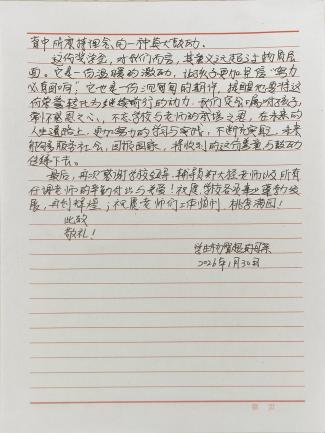 育中所秉持理念的一种莫大鼓励。
这份奖学金，对我们而言，其意义远超过物质层
面。它是一份温暖的激励，让孩子更加坚信“努力
必有回响”；它也是一份沉甸甸的期许，提醒她要将这
份荣誉转化为继续前行的动力。我们定会嘱咐孩子，
常怀感恩之心，不负学校与老师的栽培之恩，在未来的
人生道路上，更加努力的学习与实践，不断充实自己，未来
能够服务社会，回报国家，将收到的这份善意与鼓励
传递下去。
最后，再次感谢学校领导、辅导员老师以及所有
任课老师的辛勤付出与关爱！祝愿学校各项事业蓬勃发
展，再创辉煌；祝愿老师们工作顺利，桃李满园！
此致
敬礼！
学生的母亲
2026年1月30日